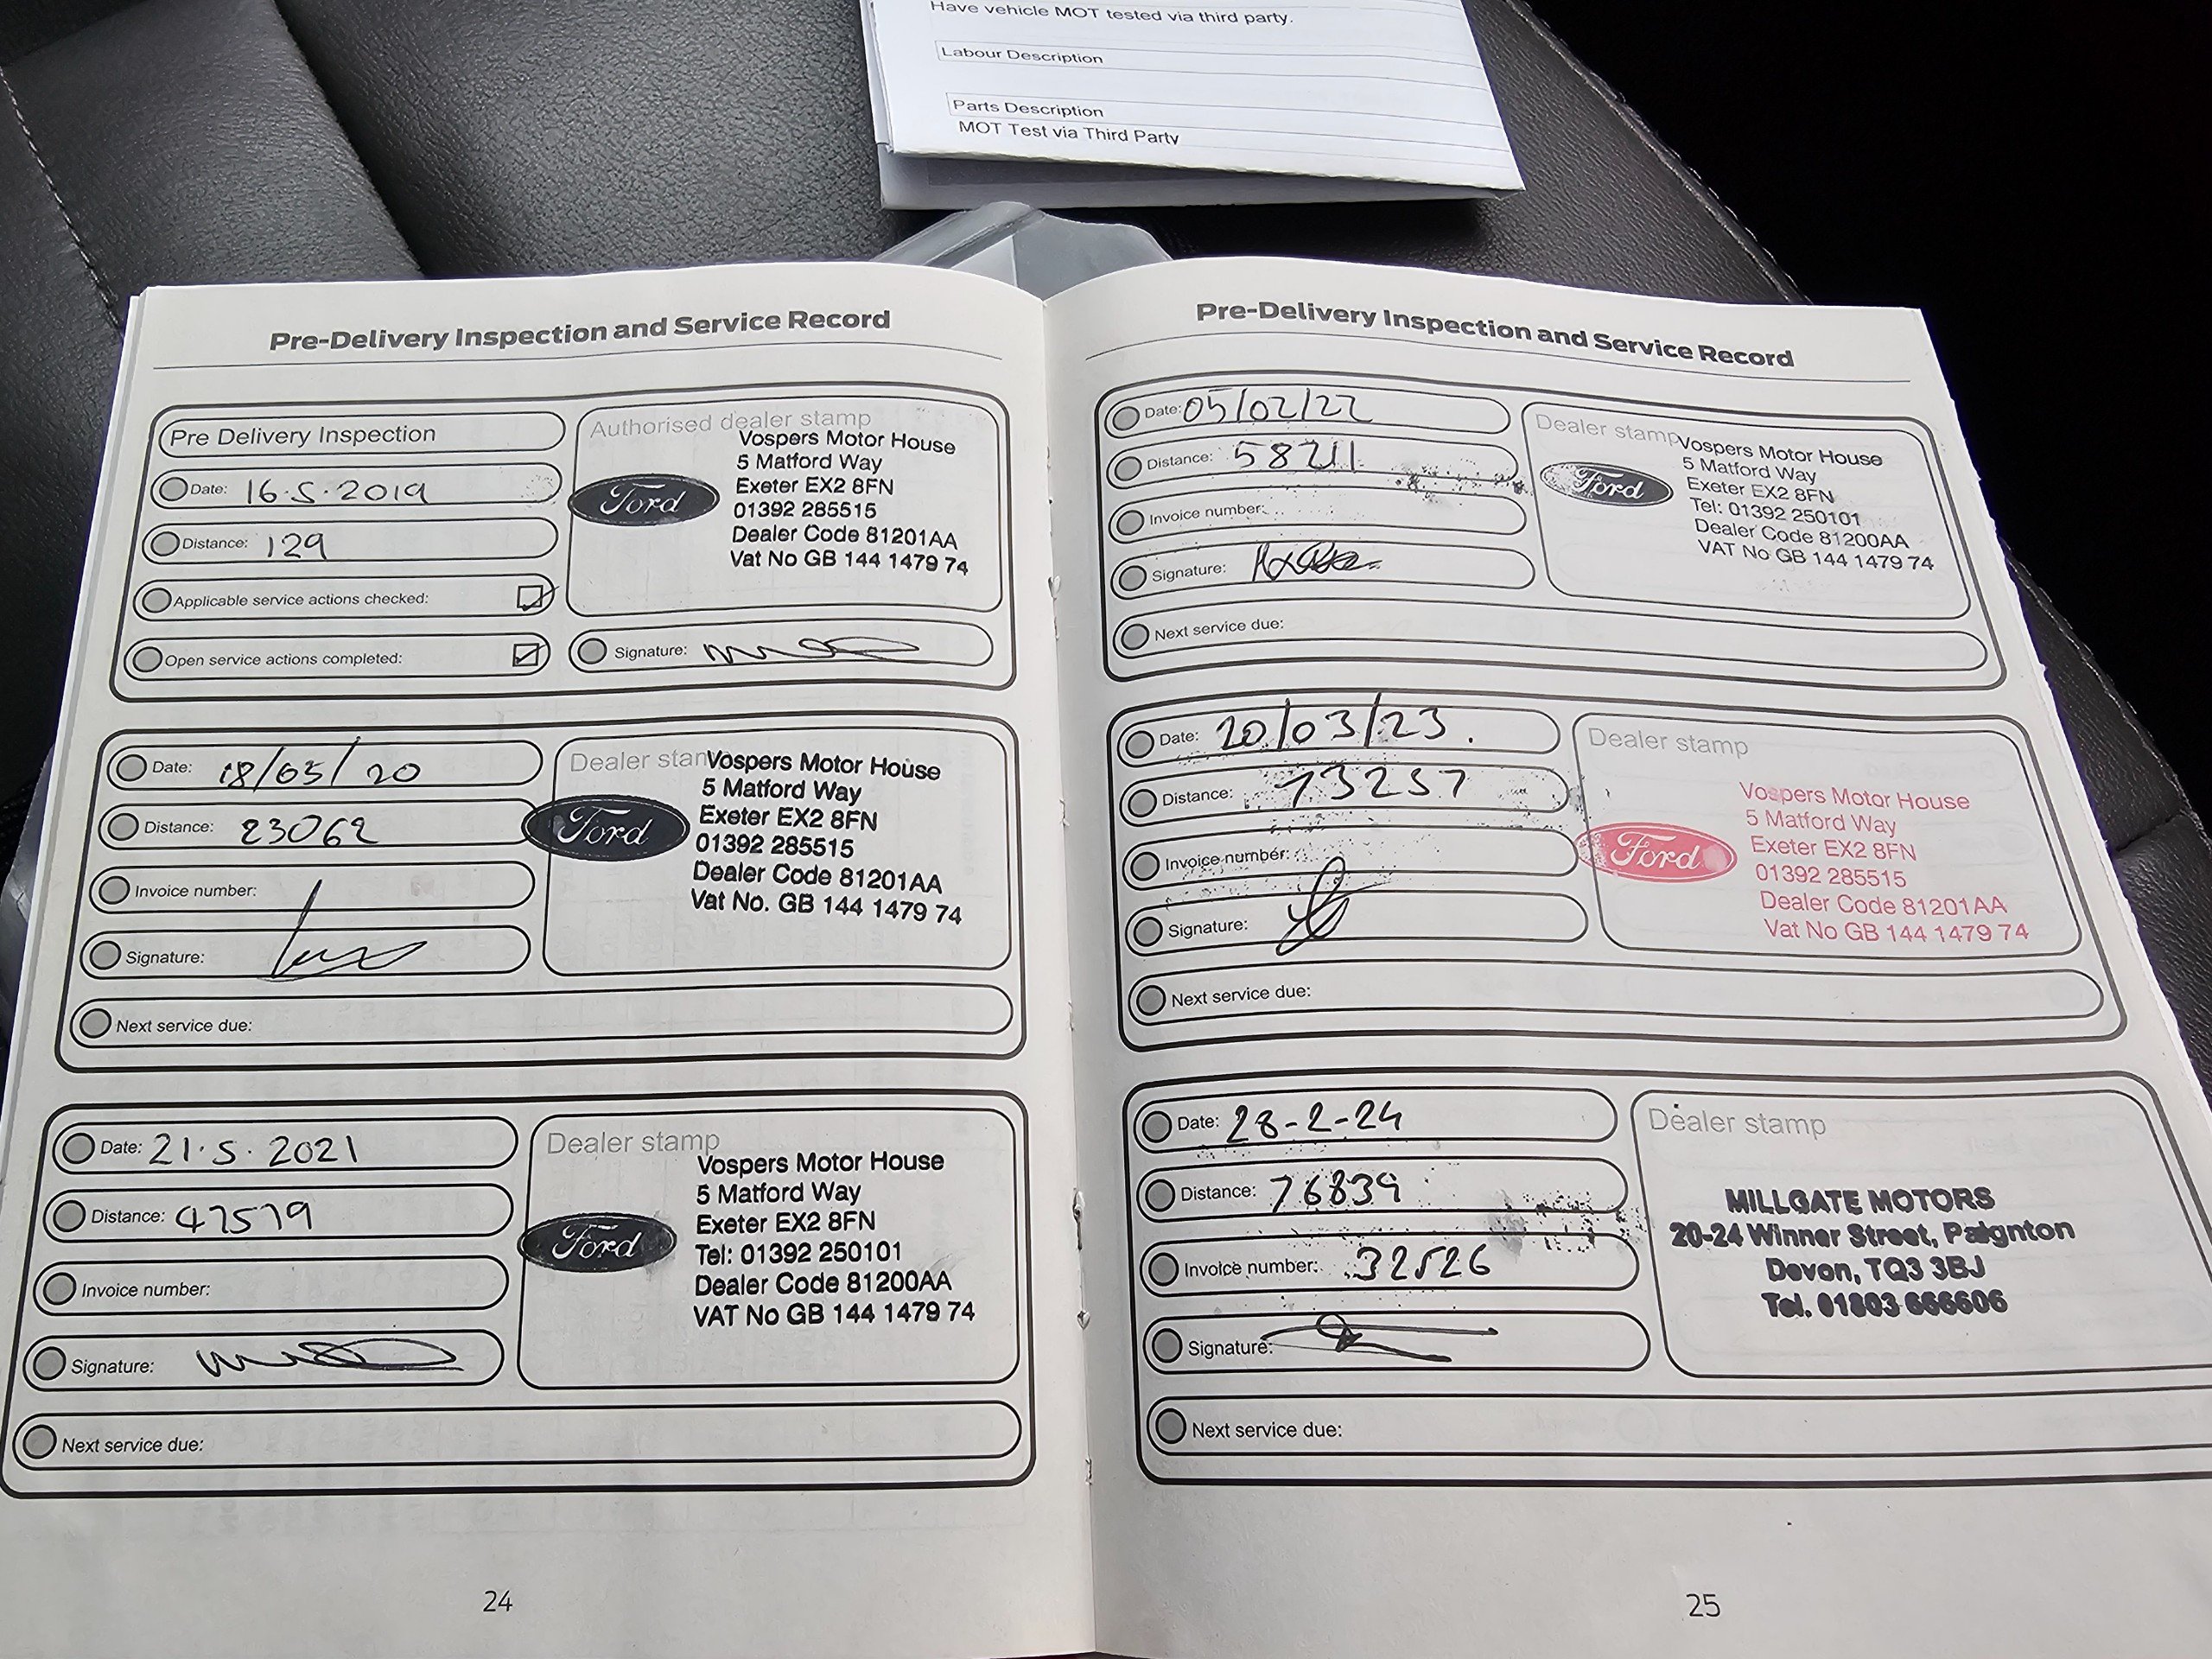 Have vehicle MOT tested via third party.
Labour Description
Parts Description
MOT Test via Third Party
Pre-Delivery Inspection and Service Record
Pre Delivery Inspection
Date: 16.5.2019
Distance: 129
Applicable service actions checked:
Open service actions completed:
Authorised dealer stamp
Ford
Vospers Motor House
5 Matford Way
Exeter EX2 8FN
01392 285515
Dealer Code 81201AA
Vat No GB 144 1479 74
Signature:
Date: 18/05/20
Distance: 23062
Invoice number:
Signature:
Next service due:
Dealer stam
Ford
Vospers Motor House
5 Matford Way
Exeter EX2 8FN
01392 285515
Dealer Code 81201AA
Vat No. GB 144 1479 74
Date: 21.5.2021
Distance: 47579
Invoice number:
Signature:
Next service due:
Dealer stamp
Ford
Vospers Motor House
5 Matford Way
Exeter EX2 8FN
Tel: 01392 250101
Dealer Code 81200AA
VAT No GB 144 1479 74
24
Pre-Delivery Inspection and Service Record
Date: 05/02/22
Distance: 58211
Invoice number:
Signature:
Next service due:
Dealer stamp
Ford
Vospers Motor House
5 Matford Way
Exeter EX2 8FN
Tel: 01392 250101
Dealer Code 81200AA
VAT No GB 144 1479 74
Date: 20/03/23.
Distance: 73257
Invoice number:
Signature:
Next service due:
Dealer stamp
Ford
Vospers Motor House
5 Matford Way
Exeter EX2 8FN
01392 285515
Dealer Code 81201AA
Vat No GB 144 1479 74
Date: 28-2-24
Distance: 76839
Invoice number: 32526
Signature:
Next service due:
Dealer stamp
MILLGATE MOTORS
20-24 Winner Street, Paignton
Devon, TQ3 3BJ
Tel. 01803 666606
25